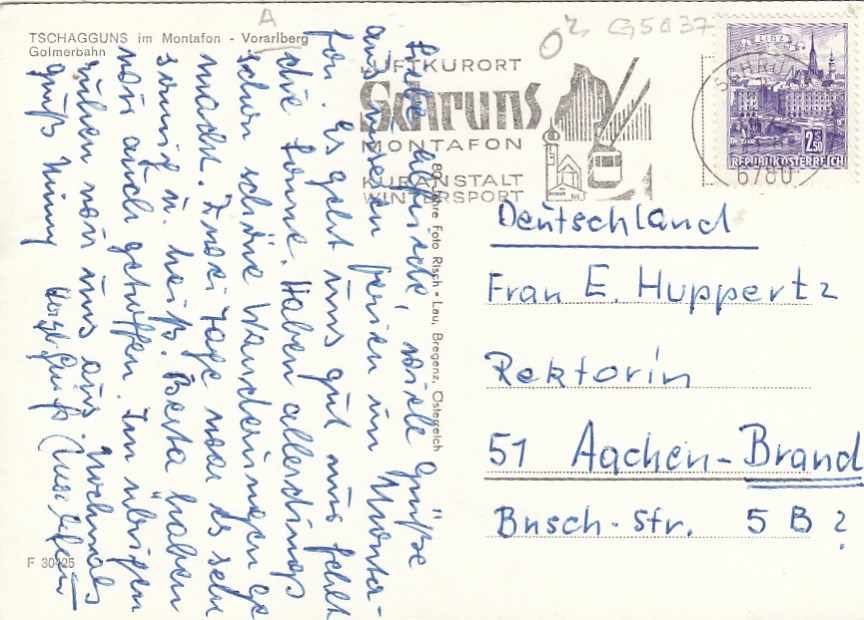 A
O² G5037
TSCHAGGUNS im Montafon - Vorarlberg
Golmerbahn
LUFTKURORT
Schruns
MONTAFON
KURANSTALT
WINTERSPORT
SCHRUNS
6780
LINZ
2.50
REPUBLIK ÖSTERREICH
Liebe viele Grüße
aus unseren Ferien im Monta-
fon. Es geht uns gut nur fehlt
die Sonne. Haben allerdings
schon schöne Wanderungen ge
macht. Zwei Tage war es sehr
sonnig u. heiß. Berta haben
wir auch getroffen. Im übrigen
ruhen wir uns aus. Nochmals
Gruß
Herzl. Gruß
Foto Risch - Lau, Bregenz, Österreich
Deutschland
Frau E. Huppertz
Rektorin
51 Aachen-Brand
Busch-Str. 5 B ?
F 30425